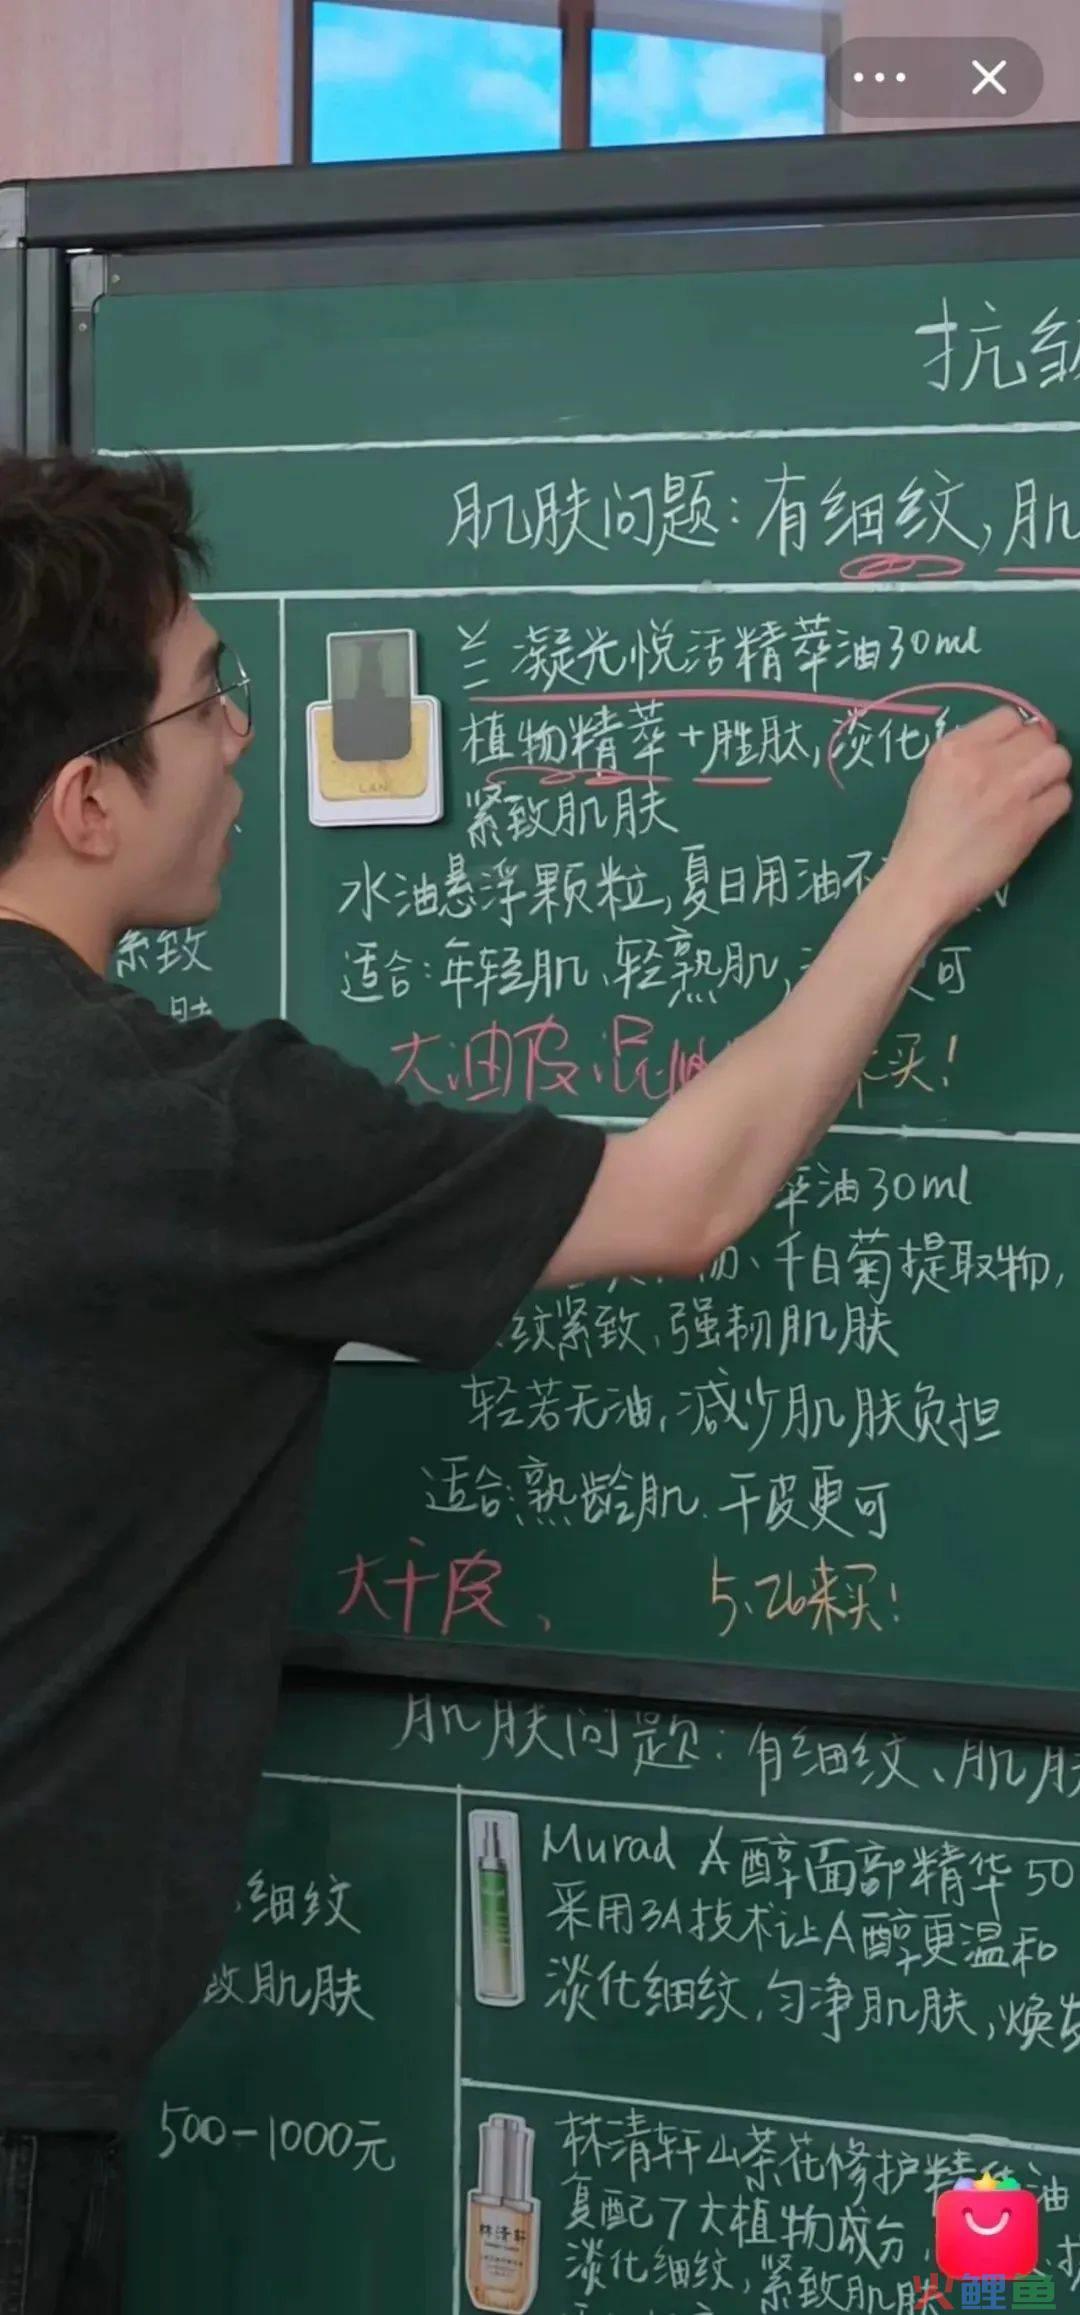 抗皱
肌肤问题：有细纹，肌
兰 凝光悦活精萃油30ml
植物精萃+胜肽，淡化
紧致肌肤
LAN
水油悬浮颗粒，夏日用油不
适合：年轻肌、轻熟肌，
可
紧致
肤
大油皮、混油
来买！
萃油30ml
物、千白菊提取物，
纹紧致，强韧肌肤
轻若无油，减少肌肤负担
适合：熟龄肌、干皮更可
大干皮、
5.26来买！
肌肤问题：有细纹、肌肤
Murad A醇面部精华50
采用3A技术让A醇更温和
淡化细纹，匀净肌肤，焕发
细纹
致肌肤
500-1000元
林清轩山茶花修护精华油
复配7大植物成分，
淡化细纹，紧致肌肤
林清轩
火鲤鱼